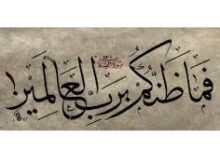 فما ظنكم برب العالمين